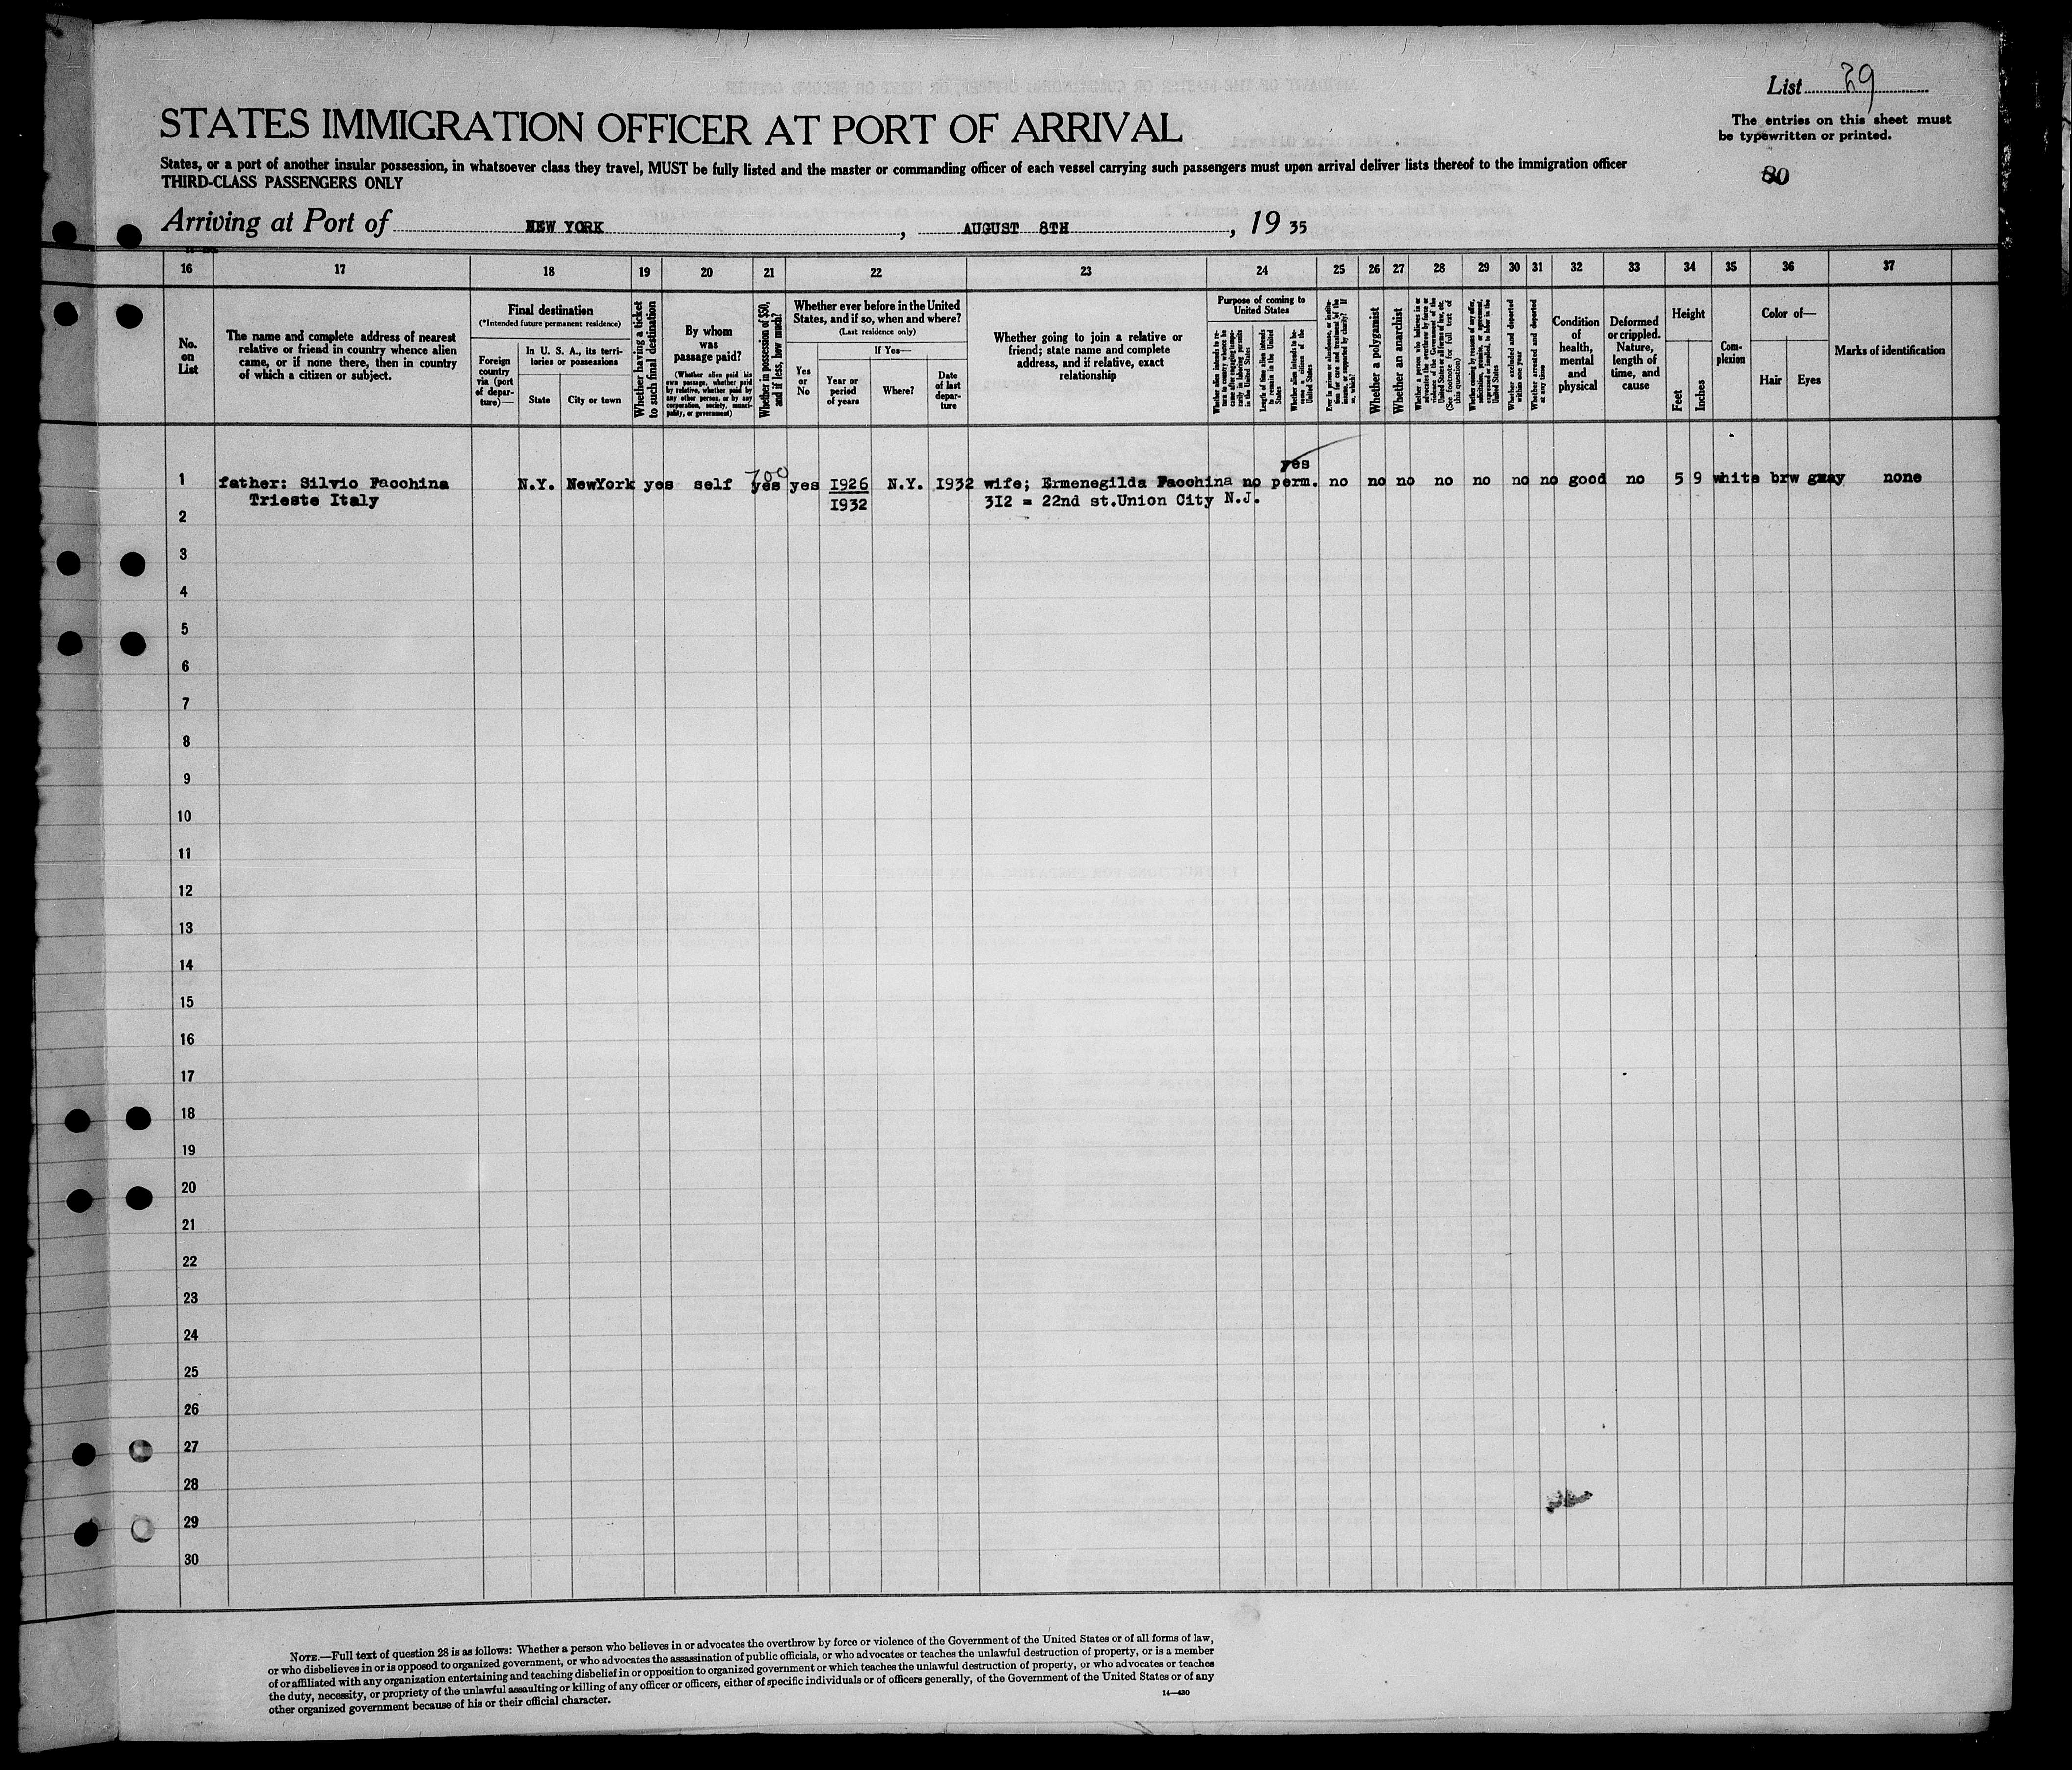 List 29
The entries on this sheet must
be typewritten or printed.
80
STATES IMMIGRATION OFFICER AT PORT OF ARRIVAL
States, or a port of another insular possession, in whatsoever class they travel, MUST be fully listed and the master or commanding officer of each vessel carrying such passengers must upon arrival deliver lists thereof to the immigration officer
THIRD-CLASS PASSENGERS ONLY
Arriving at Port of NEW YORK, AUGUST 8TH, 19 35
16 17 18 19 20 21 22 23 24 25 26 27 28 29 30 31 32 33 34 35 36 37
No.
on
List
The name and complete address of nearest
relative or friend in country whence alien
came, or if none there, then in country
of which a citizen or subject.
Final destination
(*Intended future permanent residence)
Foreign
country
via (port
of depar-
ture)—
In U. S. A., its terri-
tories or possessions
State
City or town
Whether having a ticket
to such final destination
By whom
was
passage paid?
(Whether alien paid his
own passage, whether paid
by relative, whether paid by
any other person, or by any
corporation, society, munici-
pality, or government)
Whether in possession of $50,
and if less, how much?
Whether ever before in the United
States, and if so, when and where?
(Last residence only)
Yes
or
No
If Yes—
Year or
period
of years
Where?
Date
of last
depar-
ture
Whether going to join a relative or
friend; state name and complete
address, and if relative, exact
relationship
Purpose of coming to
United States
Whether alien intends to re-
turn to country whence he
came after engaging tempo-
rarily in laboring pursuits
in the United States
Length of time alien intends
to remain in the United
States
Whether alien intends to be-
come a citizen of the
United States
Ever in prison or almshouse, or institu-
tion for care and treatment of the
insane, or supported by charity? If
so, which?
Whether a polygamist
Whether an anarchist
Whether a person who believes in or
advocates the overthrow by force or
violence of the Government of the
United States or all forms of law, etc.
(See footnote for full text of
this question)
Whether coming by reason of any offer,
solicitation, promise, or agreement,
expressed or implied, to labor in the
United States
Whether excluded and deported
within one year
Whether arrested and deported
at any time
Condition
of
health,
mental
and
physical
Deformed
or crippled.
Nature,
length of
time, and
cause
Height
Feet
Inches
Com-
plexion
Color of—
Hair
Eyes
Marks of identification
700 yes
1 father: Silvio Facchina N.Y. NewYork yes self yes yes 1926 N.Y. 1932 wife; Ermenegilda Facchina no perm. no no no no no no no good no 5 9 white brw gray none
Trieste Italy 1932 312 = 22nd st.Union City N.J.
2
3
4
5
6
7
8
9
10
11
12
13
14
15
16
17
18
19
20
21
22
23
24
25
26
27
28
29
30
NOTE.—Full text of question 28 is as follows: Whether a person who believes in or advocates the overthrow by force or violence of the Government of the United States or of all forms of law,
or who disbelieves in or is opposed to organized government, or who advocates the assassination of public officials, or who advocates or teaches the unlawful destruction of property, or is a member
of or affiliated with any organization entertaining and teaching disbelief in or opposition to organized government or which teaches the unlawful destruction of property, or who advocates or teaches
the duty, necessity, or propriety of the unlawful assaulting or killing of any officer or officers, either of specific individuals or of officers generally, of the Government of the United States or of any
other organized government because of his or their official character.
14—430